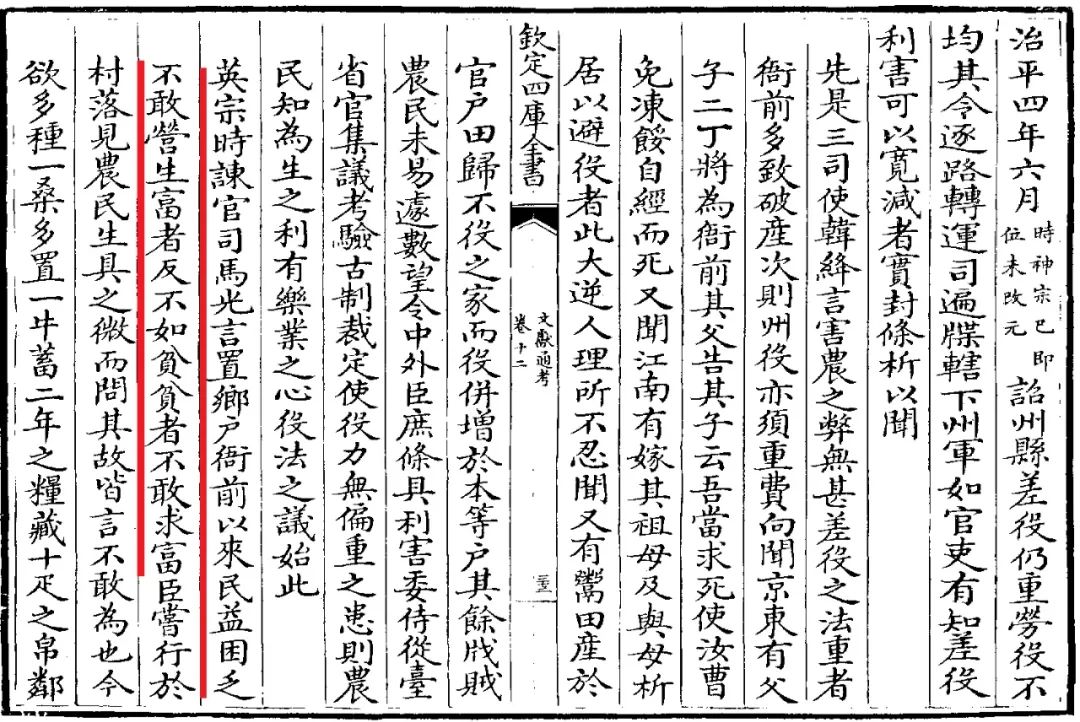 治平四年六月時神宗已即位未改元詔州縣差役仍重勞役不
均其令逐路轉運司遍牒轄下州軍如官吏有知差役
利害可以寬減者實封條析以聞
先是三司使韓絳言害農之弊無甚差役之法重者
衙前多致破産次則州役亦須重費向聞京東有父
子二丁將為衙前其父告其子云吾當求死使汝曹
免凍餒自經而死又聞江南有嫁其祖母及與母析
居以避役者此大逆人理所不忍聞又有鬻田産於
欽定四庫全書
文獻通考
卷十二
三十三
官户田歸不役之家而役併增於本等户其餘戕賊
農民未易遽數望令中外臣庶條具利害委侍從臺
省官集議考驗古制裁定使役力無偏重之患則農
民知為生之利有樂業之心役法之議始此
英宗時諫官司馬光言置鄉户衙前以來民益困乏
不敢營生富者反不如貧貧者不敢求富臣嘗行於
村落見農民生具之微而問其故皆言不敢為也今
欲多種一桑多置一牛蓄二年之糧藏十疋之帛鄰